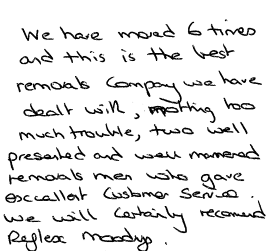 We have moved 6 times
and this is the best
removals Company we have
dealt with, nothing too
much trouble, two well
presented and well mannered
removals men who gave
excellent Customer Service.
We will Certainly recomend
Reflex Moodys.